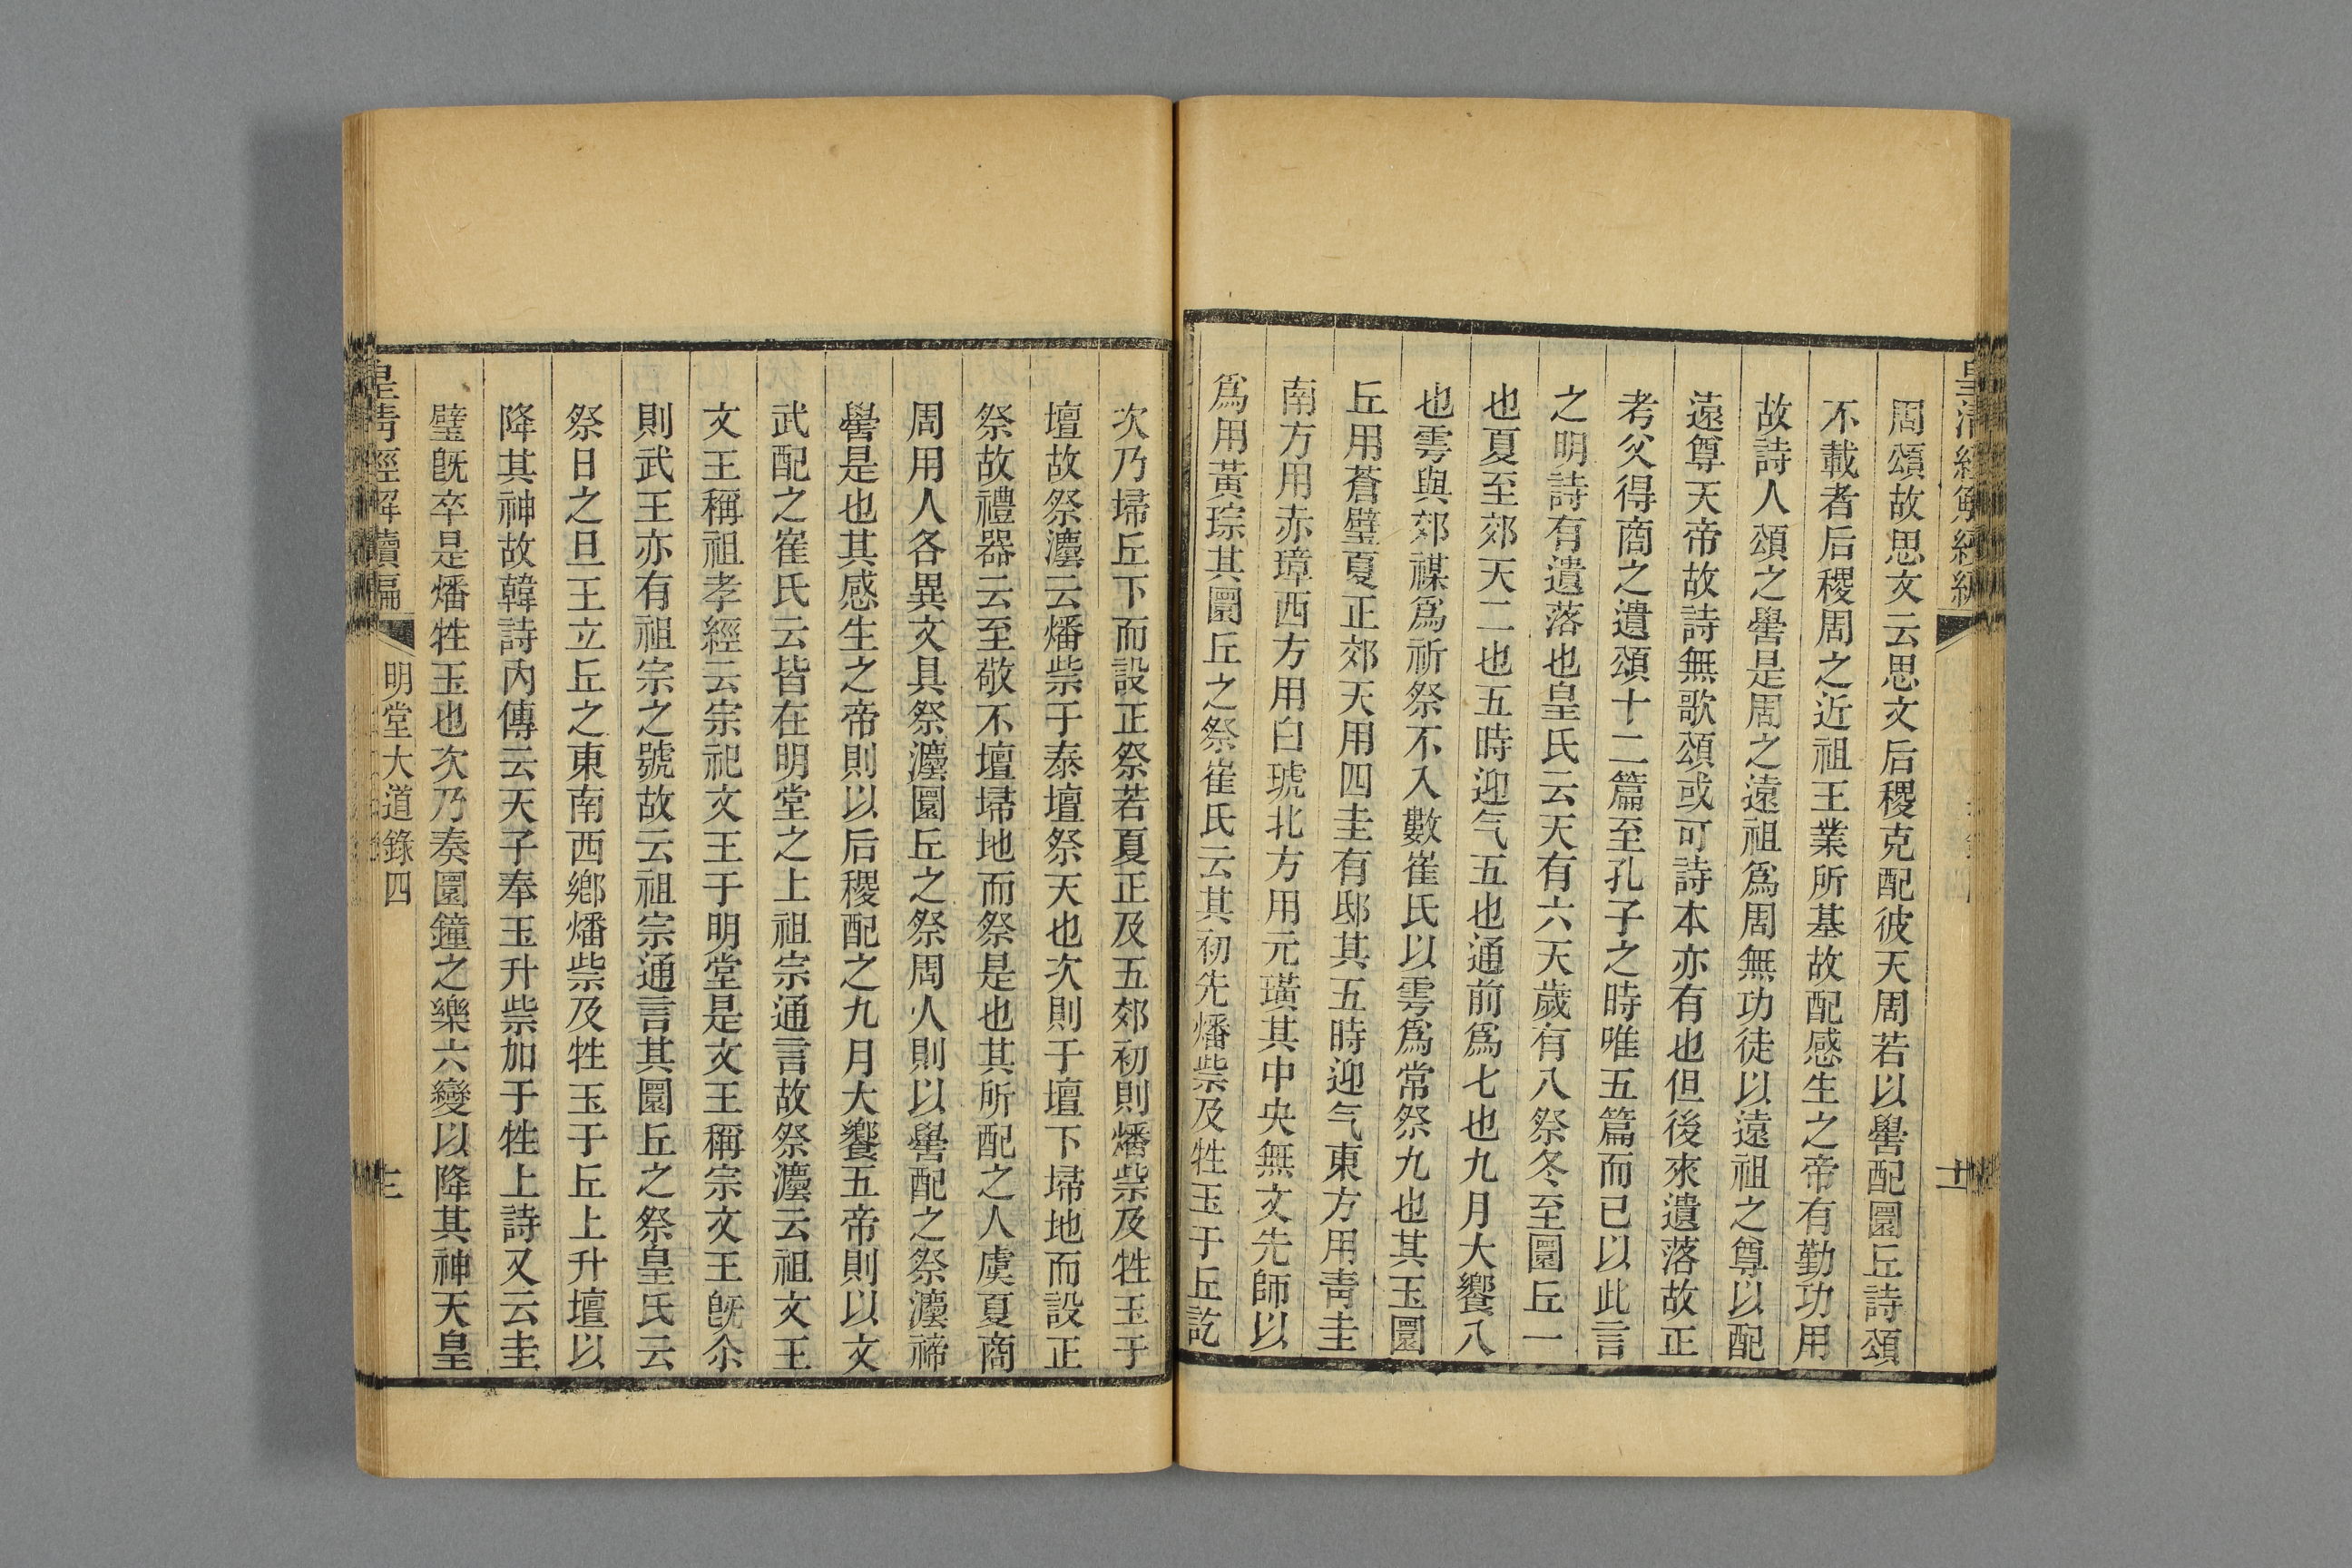 周頌故思文云思文后稷克配彼天周若以嚳配圜丘詩頌
不載者后稷周之近祖王業所基故配感生之帝有勤功用
故詩人頌之嚳是周之遠祖爲周無功徒以遠祖之尊以配
遠尊天帝故詩無歌頌或可詩本亦有也但後來遺落故正
考父得商之遺頌十二篇至孔子之時唯五篇而已以此言
之明詩有遺落也皇氏云天有六天歲有八祭冬至圜丘一
也夏至郊天二也五時迎气五也通前爲七也九月大饗八
也雩與郊禖爲祈祭不入數崔氏以雩爲常祭九也其玉圜
丘用蒼璧夏正郊天用四圭有邸其五時迎气東方用青圭
南方用赤璋西方用白琥北方用元璜其中央無文先師以
爲用黃琮其圜丘之祭崔氏云其初先燔柴及牲玉于丘訖
次乃埽丘下而設正祭若夏正及五郊初則燔柴及牲玉于
壇故祭灋云燔柴于泰壇祭天也次則于壇下埽地而設正
祭故禮器云至敬不壇埽地而祭是也其所配之人虞夏商
周用人各異文具祭灋圜丘之祭周人則以嚳配之祭灋禘
嚳是也其感生之帝則以后稷配之九月大饗五帝則以文
武配之崔氏云皆在明堂之上祖宗通言故祭灋云祖文王
文王稱祖孝經云宗祀文王于明堂是文王稱宗文王旣尒
則武王亦有祖宗之號故云祖宗通言其圜丘之祭皇氏云
祭日之旦王立丘之東南西鄉燔柴及牲玉于丘上升壇以
降其神故韓詩內傳云天子奉玉升柴加于牲上詩又云圭
璧旣卒是燔牲玉也次乃奏圜鐘之樂六變以降其神天皇
皇清經解續編
明堂大道錄四